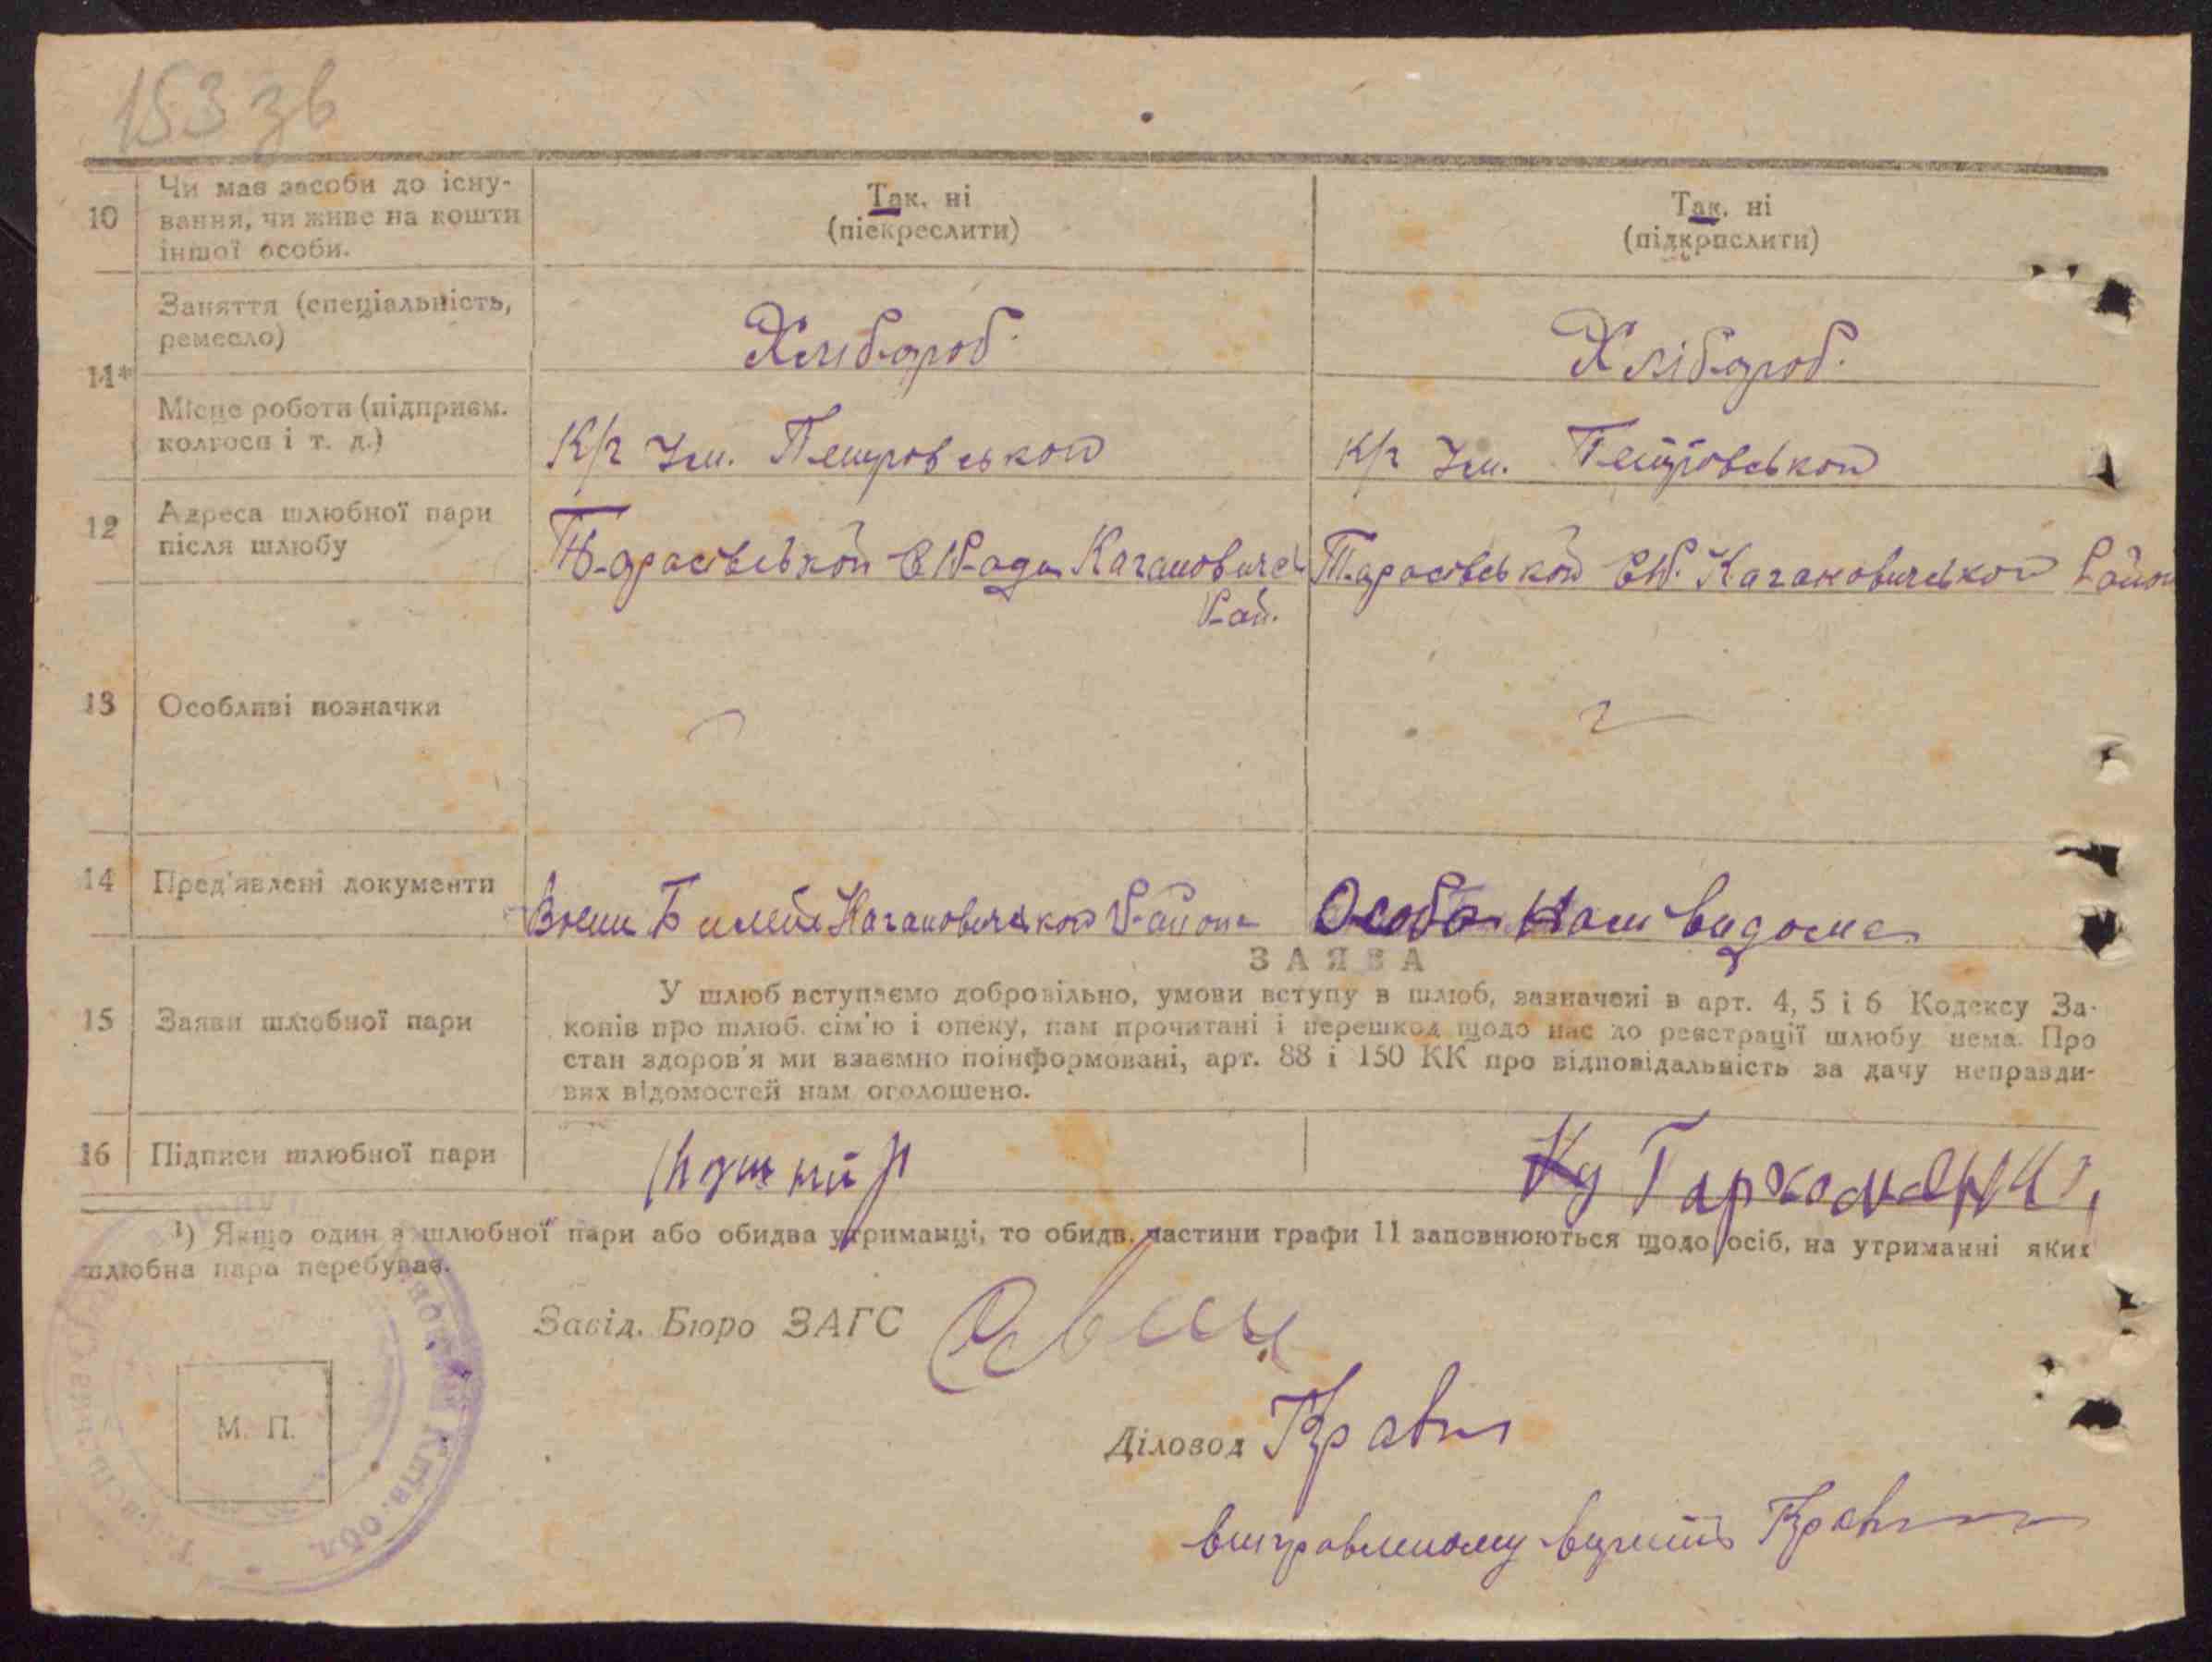 153 зв
10
Чи має засоби до існу-
вання, чи живе на кошти
іншої особи.
Так, ні
(піекреслити)
Так, ні
(підкрпслити)
11*
Заняття (спеціальність,
ремесло)
Хлібороб.
Хлібороб.
Місце роботи (підприєм.
колгосп і т. д.)
К/г Ім. Петровськой
К/г Ім. Петровськой
12
Адреса шлюбної пари
після шлюбу
Тарасівськой С/Ради Кагановичсь
Рай.
Тарасівськой С/Р. Кагановичськой Район
13
Особливі возначки
14
Пред'явлені документи
Воен Билет Кагановичськой Района
Особа Нам видома
15
Заяви шлюбної пари
ЗАЯВА
У шлюб вступаємо добровільно, умови вступу в шлюб, зазначені в арт. 4, 5 і 6 Кодексу За-
конів про шлюб. сім'ю і опеку, нам прочитані і перешкод щодо нас до реєстрації шлюбу нема. Про
стан здоров'я ми взаємно поінформовані, арт. 88 і 150 КК про відповідальність за дачу неправди-
вих відомостей нам оголошено.
16
Підписи шлюбної пари
¹) Якщо один з шлюбної пари або обидва утриманці, то обидв. частини графи 11 заповнюються щодо осіб, на утриманні яких
шлюбна пара перебуває.
Завід. Бюро ЗАГС
М. П.
Київ. Обл.
Діловод Кравч